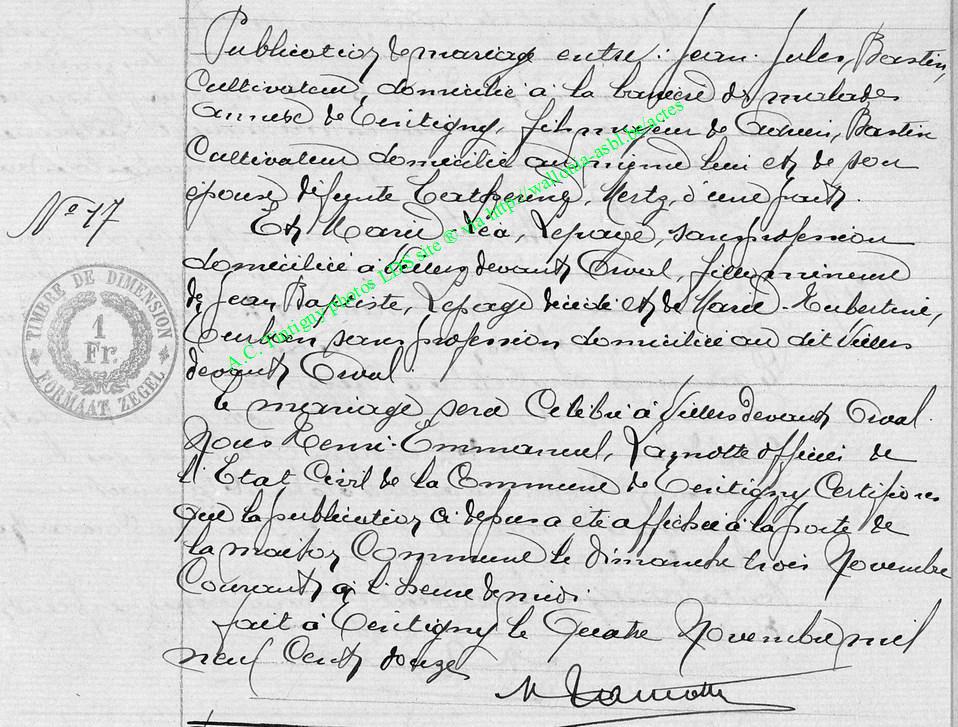 Publication de mariage entre : Jean Jules, Bastin,
Cultivateur, domicilié à la barrière des malades
annexe de Tintigny, fils majeur de Adrien, Bastin
Cultivateur domicilié au même lieu et de son
épouse défunte Catherine, Hertz, d'une part.
N° 17
Et Marie Léa, Lepage, sans profession
domiciliée à Villers devant Orval, fille mineure
de Jean Baptiste, Lepage décédé et de Marie Hubertine,
sans profession domiciliée au dit Villers
devant Orval
Le mariage sera Célébré à Villers devant Orval.
Nous Henri Emmanuel, Lamotte officier de
l'Etat Civil de la Commune de Tintigny Certifions
que la publication ci depus a été affichée à la porte de
la maison Commune le dimanche trois Novembre
Courant à l'heure de midi.
fait à Tintigny le Quatre Novembre mil
neuf Cent douze
H Lamotte
TIMBRE DE DIMENSION
1
Fr.
FORMAAT ZEGEL
A.C. Tintigny photos LDS site ® via http://wallonia-asbl.be/actes